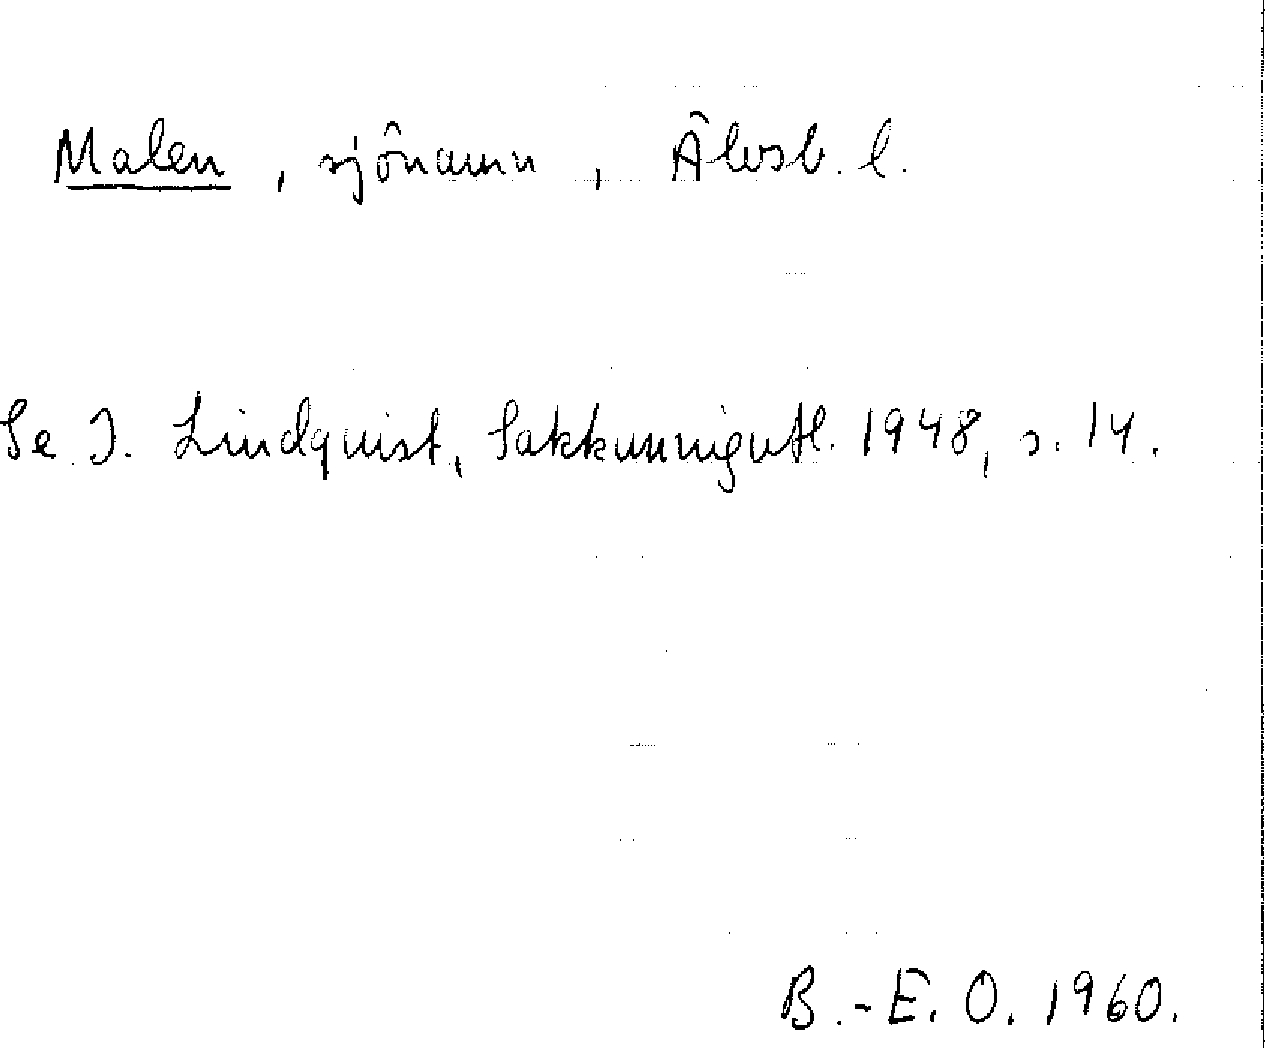 Malen, sjönamn, Älvsb. l.
Se I. Lindquist, Sakkunnigutl. 1948, s. 14.
B.-E. O. 1960.